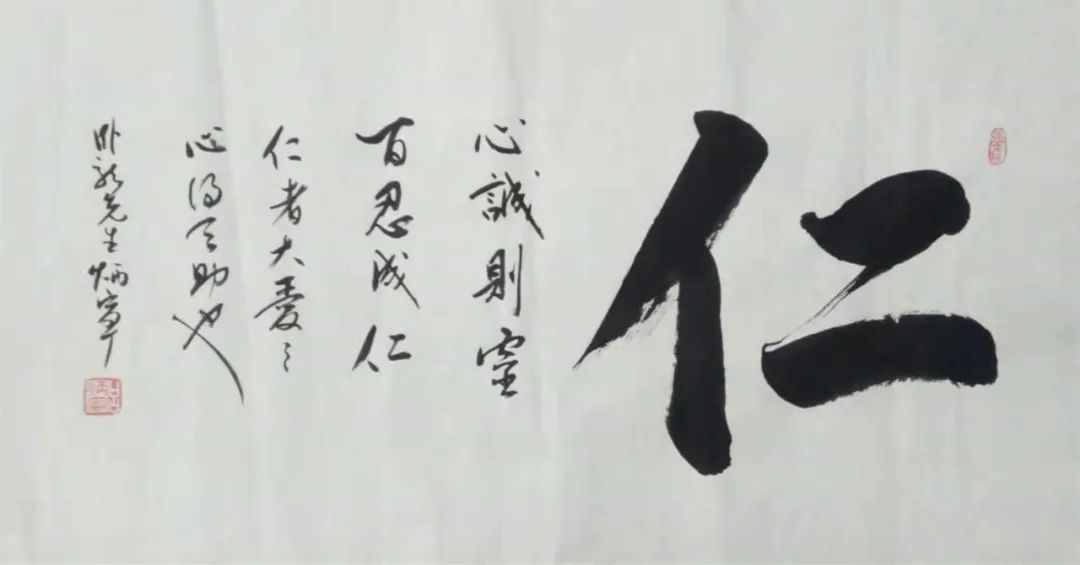 仁
心誠則靈
百忍成仁
仁者大愛之
心得天助也
卧龙先生炳章